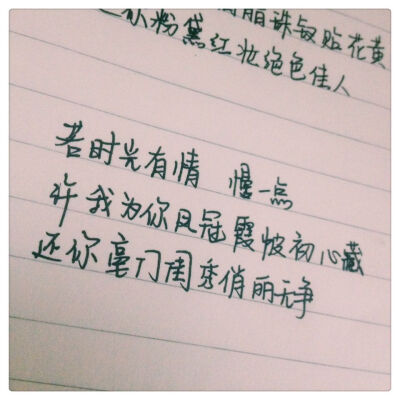 脂珠 贴花黄
你粉黛红妆绝色佳人
若时光有情 慢一点
许我为你凤冠霞帔初心藏
还你豪门闺秀俏丽无争